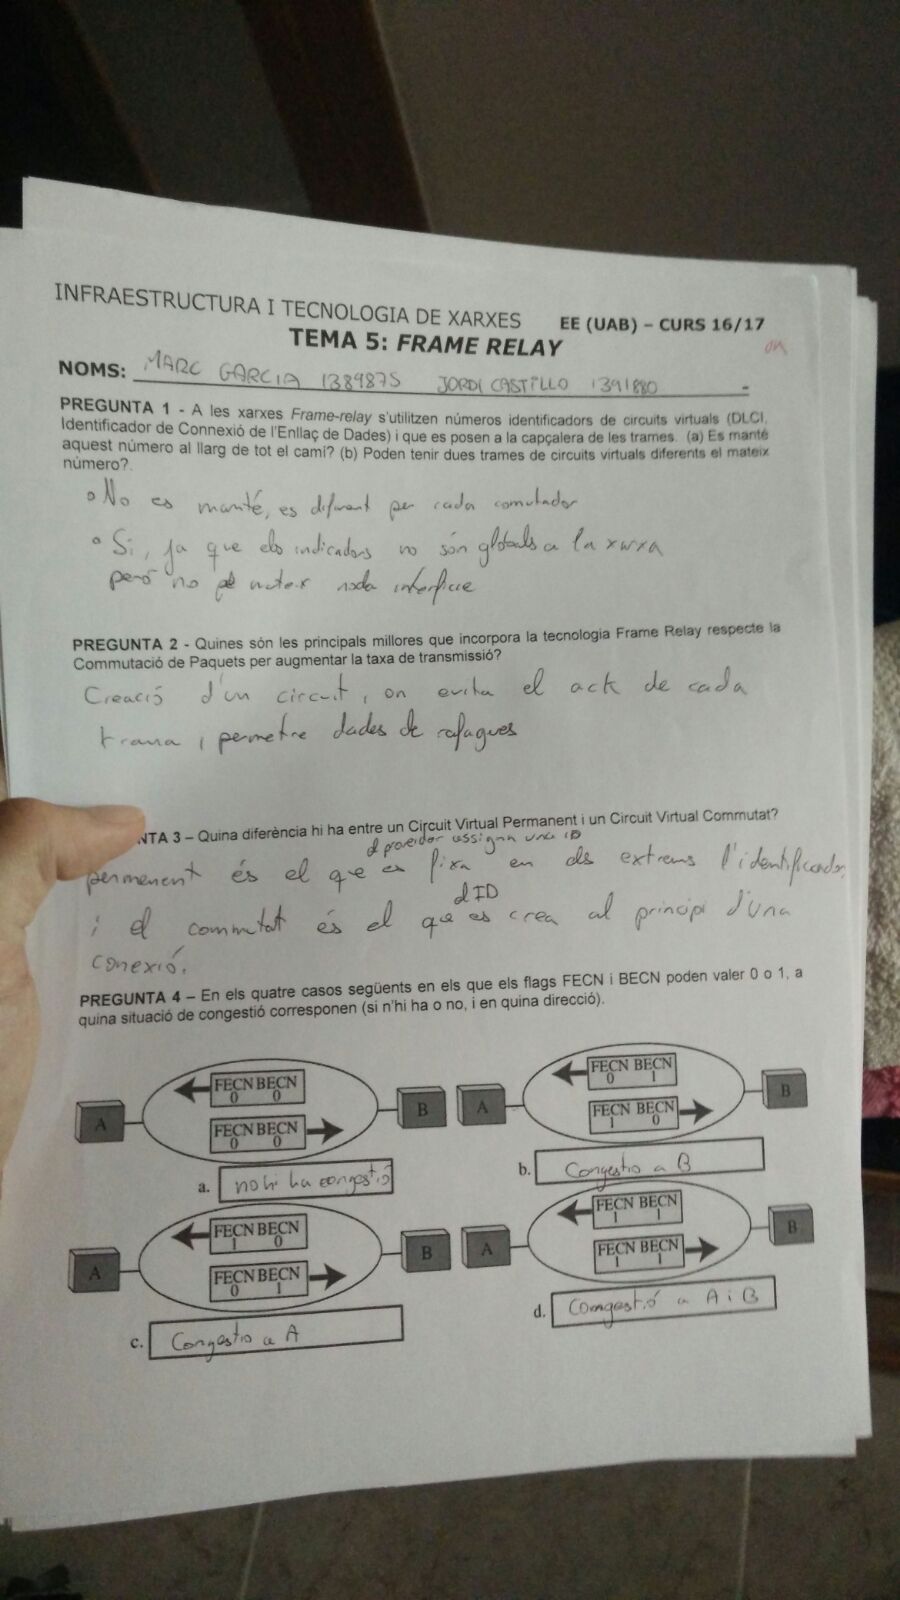 INFRAESTRUCTURA I TECNOLOGIA DE XARXES EE (UAB) – CURS 16/17
TEMA 5: FRAME RELAY
NOMS: MARC GARCIA 1389875 JORDI CASTILLO 1391880
PREGUNTA 1 - A les xarxes Frame-relay s'utilitzen números identificadors de circuits virtuals (DLCI,
Identificador de Connexió de l'Enllaç de Dades) i que es posen a la capçalera de les trames. (a) Es manté
aquest número al llarg de tot el camí? (b) Poden tenir dues trames de circuits virtuals diferents el mateix
número?
No es manté, es diferent per cada comutador
Si, ja que els indicadors no són globals a la xarxa
però no mateix node interficie
PREGUNTA 2 - Quines són les principals millores que incorpora la tecnologia Frame Relay respecte la
Commutació de Paquets per augmentar la taxa de transmissió?
Creació d'un circuit, on evita el ack de cada
trama i permetre dades de rafagues
NTA 3 – Quina diferència hi ha entre un Circuit Virtual Permanent i un Circuit Virtual Commutat?
el proveidor assigna una ID
permanent és el que es fixa en els extrems l'identificador,
el ID
i el commutat és el que es crea al principi d'una
conexió.
PREGUNTA 4 – En els quatre casos següents en els que els flags FECN i BECN poden valer 0 o 1, a
quina situació de congestió corresponen (si n'hi ha o no, i en quina direcció).
FECN BECN
0 0
A B
FECN BECN
0 0
a. no hi ha congestió
FECN BECN
0 1
A B
FECN BECN
1 0
b. Congestio a B
FECN BECN
1 0
A B
FECN BECN
0 1
c. Congestio a A
FECN BECN
1 1
A B
FECN BECN
1 1
d. Congestió a A i B